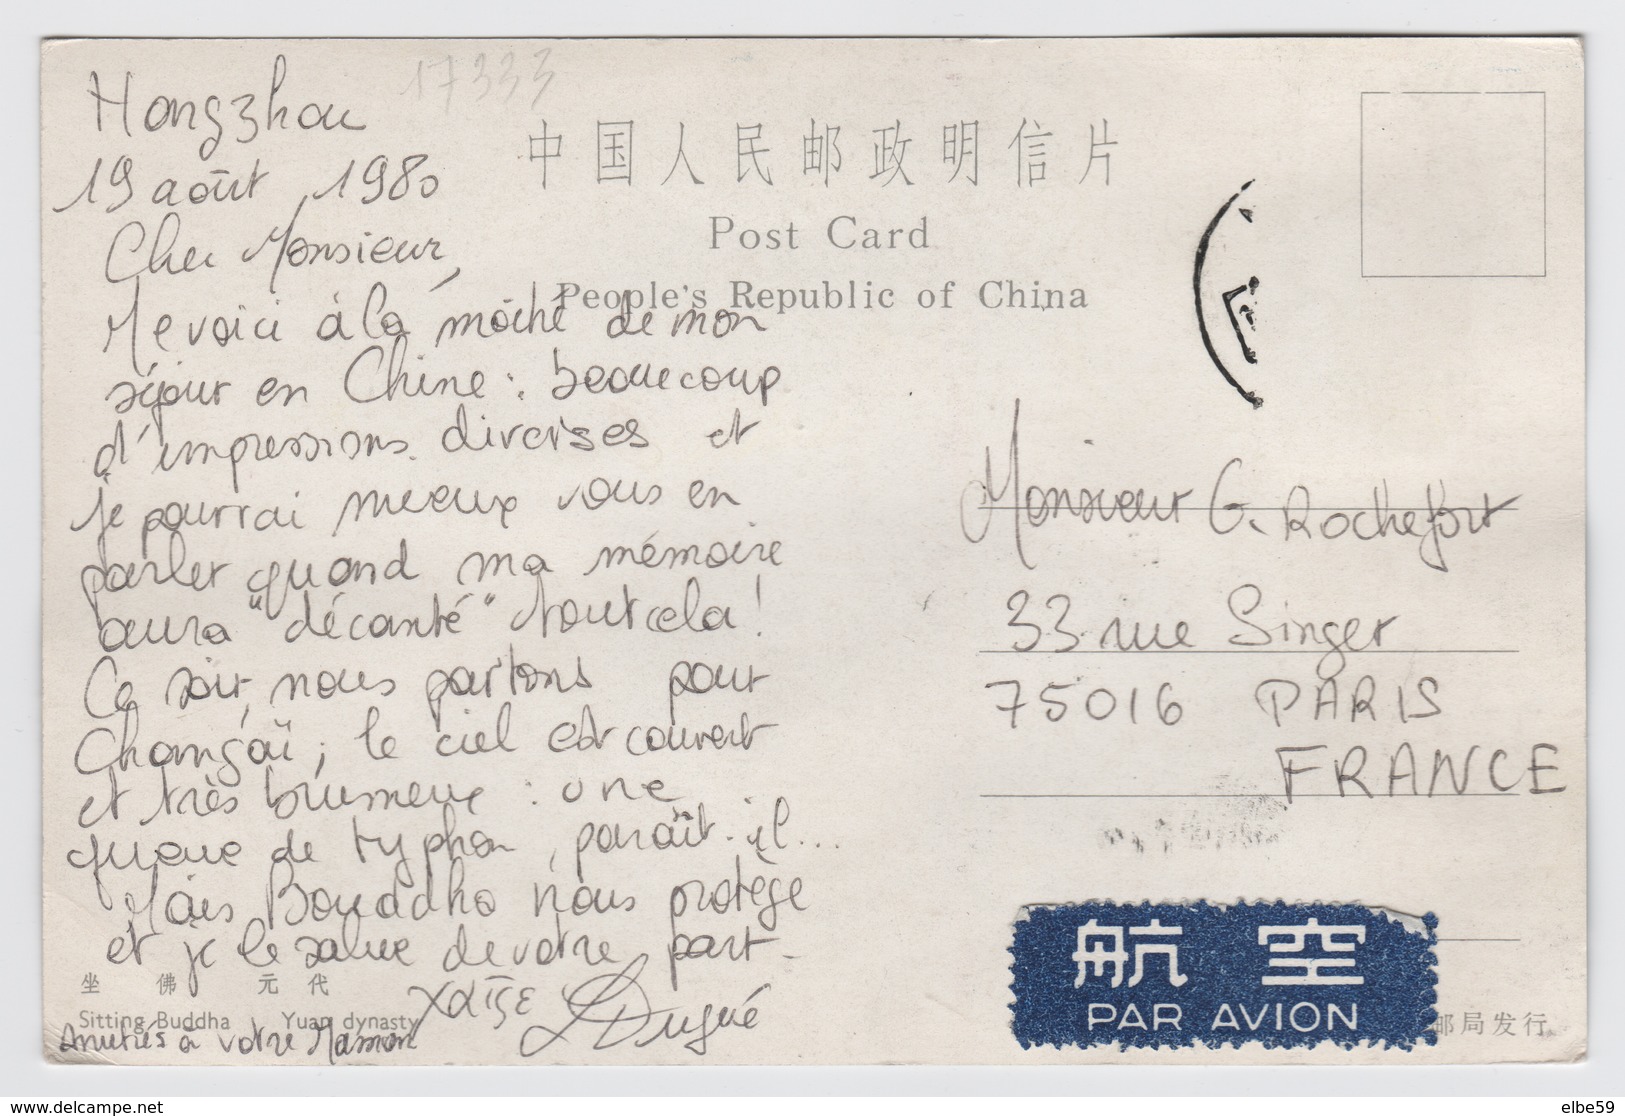 17333
Hongzhou
19 août, 1980
Cher Monsieur,
Me voici à la moitié de mon
séjour en Chine : beaucoup
d'impressions diverses et
je pourrai mieux vous en
parler quand ma mémoire
aura "décanté" tout cela !
Ce soir, nous partons pour
Changaï ; le ciel est couvert
et très brumeux : une
queue de typhon, paraît-il...
Mais Bouddha nous protège
et je le salue de votre part -
Dugué
Amitiés à votre Maman
中国人民邮政明信片
Post Card
People's Republic of China
Monsieur G. Rochefort
33 rue Singer
75016 PARIS
FRANCE
坐佛 元代
Sitting Buddha Yuan dynasty
航空
PAR AVION
邮局发行
www.delcampe.net
elbe59